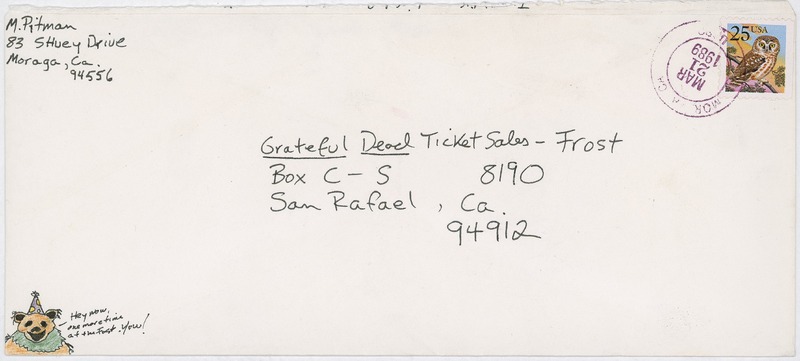 M. Pitman
83 Shuey Drive
Moraga, Ca.
94556
25 USA
MAR
21
1989
Grateful Dead Ticket Sales - Frost
Box C - S 8190
San Rafael, Ca.
94912
Hey now,
one more time
at the Frost. Yow!